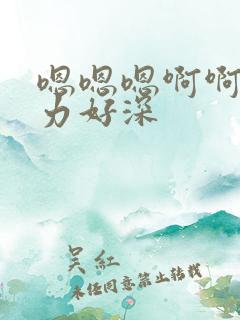 嗯嗯嗯啊啊
力好深
吴红
未经同意禁止转载